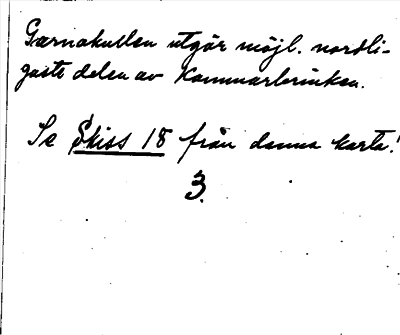 Garnakullen utgör möjl. nordli-
gaste delen av Kammarbrinken.
Se Skiss 18 från denna karta!
3.